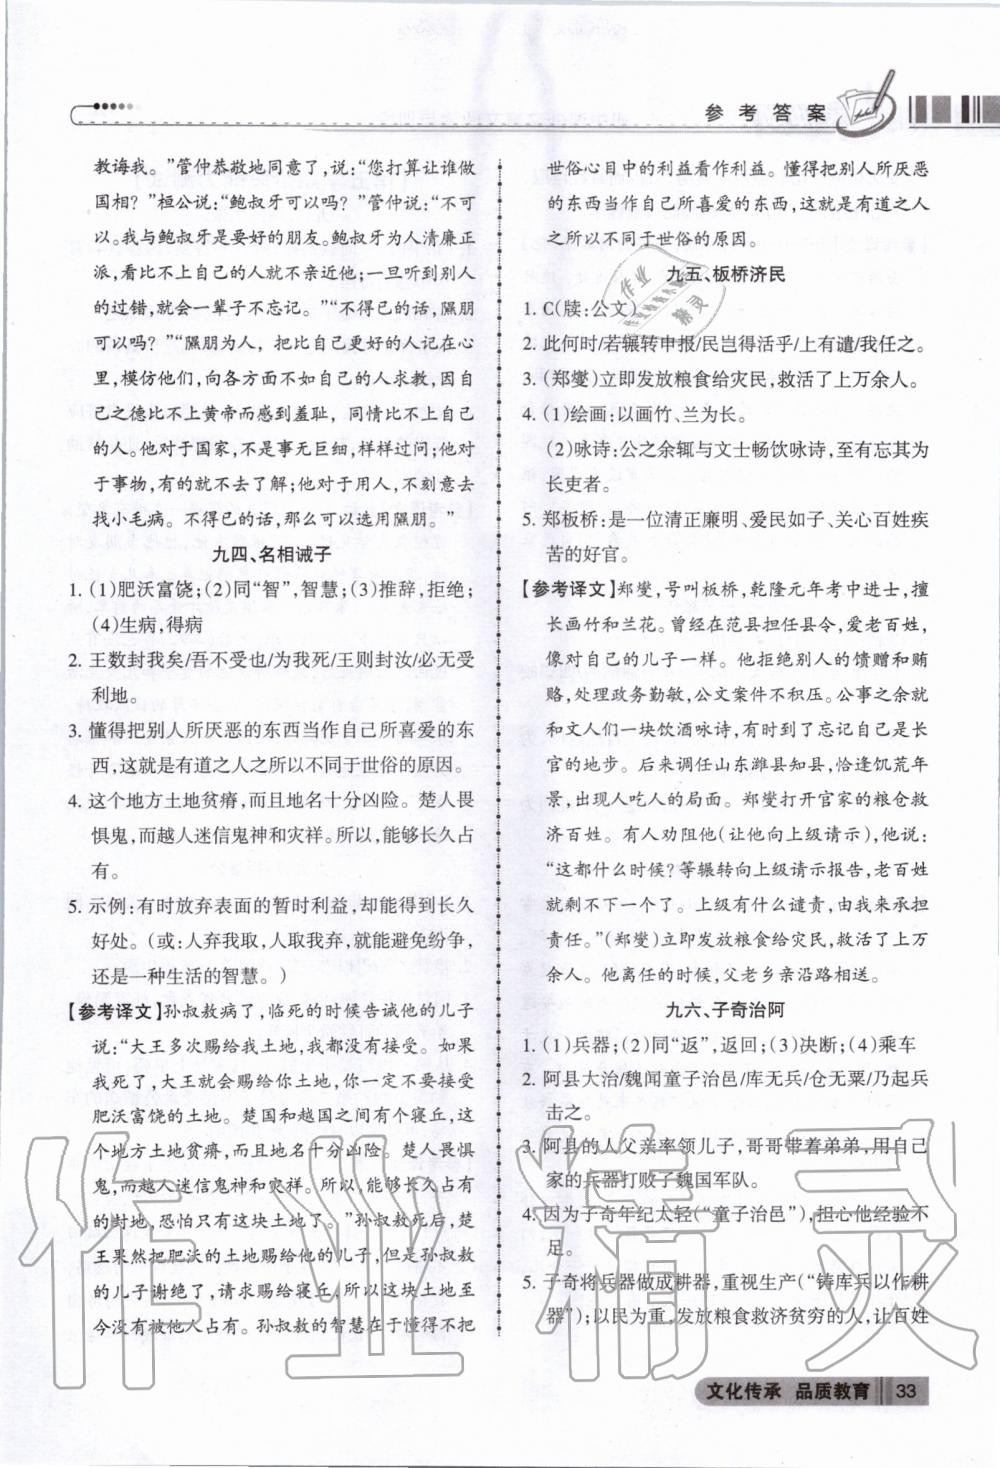 参考答案
教诲我。”管仲恭敬地同意了,说:“您打算让谁做
国相?”桓公说:“鲍叔牙可以吗?”管仲说:“不可
以。我与鲍叔牙是要好的朋友。鲍叔牙为人清廉正
派,看比不上自己的人就不亲近他;一旦听到别人
的过错,就会一辈子不忘记。”“不得已的话,隰朋
可以吗?”“隰朋为人,把比自己更好的人记在心
里,模仿他们,向各方面不如自己的人求教,因自
己之德比不上黄帝而感到羞耻,同情比不上自己
的人。他对于国家,不是事无巨细,样样过问;他对
于事物,有的就不去了解;他对于用人,不刻意去
找小毛病。不得已的话,那么可以选用隰朋。”
九四、名相诫子
1. (1)肥沃富饶;(2)同“智”,智慧;(3)推辞,拒绝;
(4)生病,得病
2. 王数封我矣/吾不受也/为我死/王则封汝/必无受
利地。
3. 懂得把别人所厌恶的东西当作自己所喜爱的东
西,这就是有道之人之所以不同于世俗的原因。
4. 这个地方土地贫瘠,而且地名十分凶险。楚人畏
惧鬼,而越人迷信鬼神和灾祥。所以,能够长久占
有。
5. 示例:有时放弃表面的暂时利益,却能得到长久
好处。(或:人弃我取,人取我弃,就能避免纷争,
还是一种生活的智慧。)
【参考译文】孙叔敖病了,临死的时候告诫他的儿子
说:“大王多次赐给我土地,我都没有接受。如果
我死了,大王就会赐给你土地,你一定不要接受
肥沃富饶的土地。楚国和越国之间有个寝丘,这
个地方土地贫瘠,而且地名十分凶险。楚人畏惧
鬼,而越人迷信鬼神和灾祥。所以,能够长久占有
的封地,恐怕只有这块土地了。”孙叔敖死后,楚
王果然把肥沃的土地赐给他的儿子,但是孙叔敖
的儿子谢绝了,请求赐给寝丘,所以这块土地至
今没有被他人占有。孙叔敖的智慧在于懂得不把
世俗心目中的利益看作利益。懂得把别人所厌恶
的东西当作自己所喜爱的东西,这就是有道之人
之所以不同于世俗的原因。
九五、板桥济民
1. C(牍:公文)
2. 此何时/若辗转申报/民岂得活乎/上有谴/我任之。
3. (郑燮)立即发放粮食给灾民,救活了上万余人。
4. (1)绘画:以画竹、兰为长。
(2)咏诗:公之余辄与文士畅饮咏诗,至有忘其为
长吏者。
5. 郑板桥:是一位清正廉明、爱民如子、关心百姓疾
苦的好官。
【参考译文】郑燮,号叫板桥,乾隆元年考中进士,擅
长画竹和兰花。曾经在范县担任县令,爱老百姓,
像对自己的儿子一样。他拒绝别人的馈赠和贿
赂,处理政务勤敏,公文案件不积压。公事之余就
和文人们一块饮酒咏诗,有时到了忘记自己是长
官的地步。后来调任山东潍县知县,恰逢饥荒年
景,出现人吃人的局面。郑燮打开官家的粮仓救
济百姓。有人劝阻他(让他向上级请示),他说:
“这都什么时候?等辗转向上级请示报告,老百姓
就剩不下一个了。上级有什么谴责,由我来承担
责任。”(郑燮)立即发放粮食给灾民,救活了上万
余人。他离任的时候,父老乡亲沿路相送。
九六、子奇治阿
1. (1)兵器;(2)同“返”,返回;(3)决断;(4)乘车
2. 阿县大治/魏闻童子治邑/库无兵/仓无粟/乃起兵
击之。
3. 阿县的人父亲率领儿子,哥哥带着弟弟,用自己
家的兵器打败了魏国军队。
4. 因为子奇年纪太轻(“童子治邑”),担心他经验不
足。
5. 子奇将兵器做成耕器,重视生产(“铸库兵以作耕
器”);以民为重,发放粮食救济贫穷的人,让百姓
文化传承 品质教育 33
作业精灵